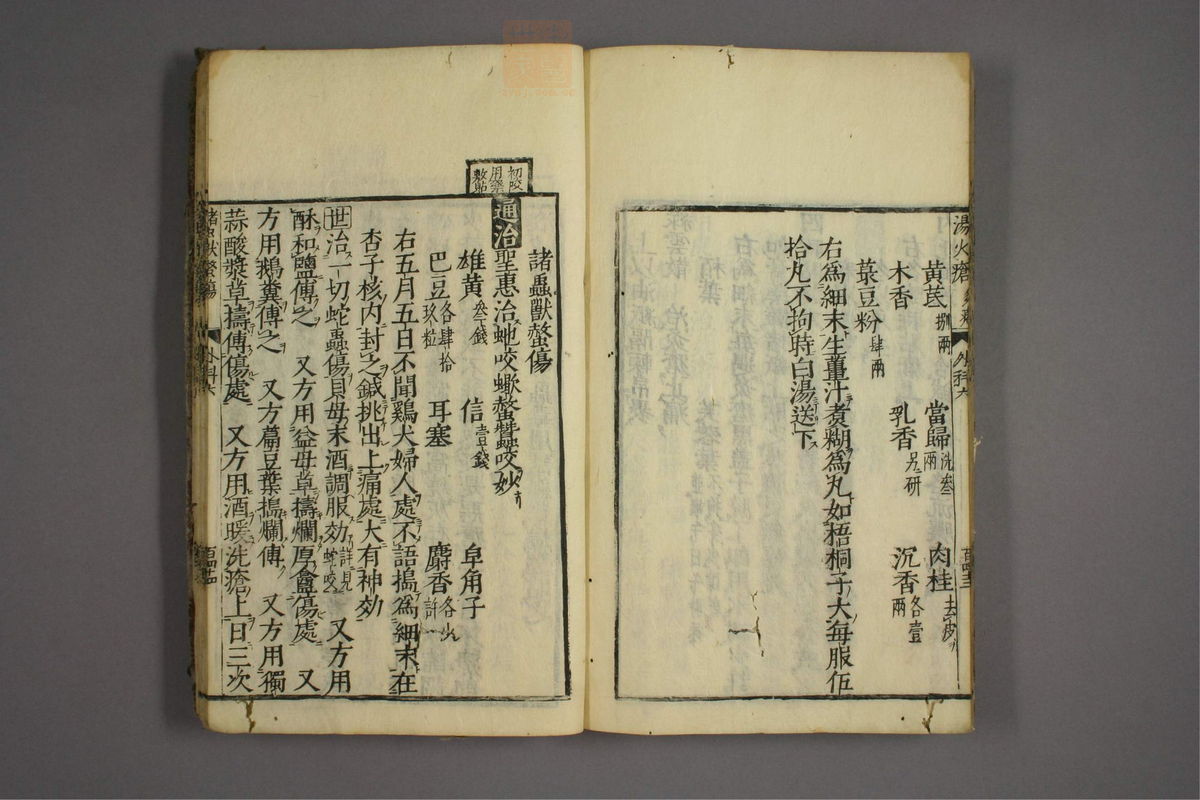 湯火瘡
外科六
黄芪捌兩 當歸洗叁兩 肉桂去皮
木香 乳香另研 沉香各壹兩
菉豆粉肆兩
右為細末生薑汁煮糊為丸如梧桐子大每服伍
拾丸不拘時白湯送下
諸蟲獸螫傷
初咬用藥敷貼
通治聖惠治虵咬蠍螫蠶咬妙
雄黄叁錢 信壹錢 皁角子
巴豆各肆拾玖粒 耳塞 麝香各少許
右五月五日不聞鷄犬婦人處不語搗為細末在
杏子核内封之鍼挑出上痛處大有神効
世治一切蛇蟲傷貝母末酒調服効詳見蛇咬 又方用
酥和鹽傅之 又方用益母草擣爛厚盦傷處 又
方用鵝糞傅之 又方藊豆葉搗爛傅 又方用獨
蒜酸漿草擣傅傷處 又方用酒暖洗瘡上日三次
外科六